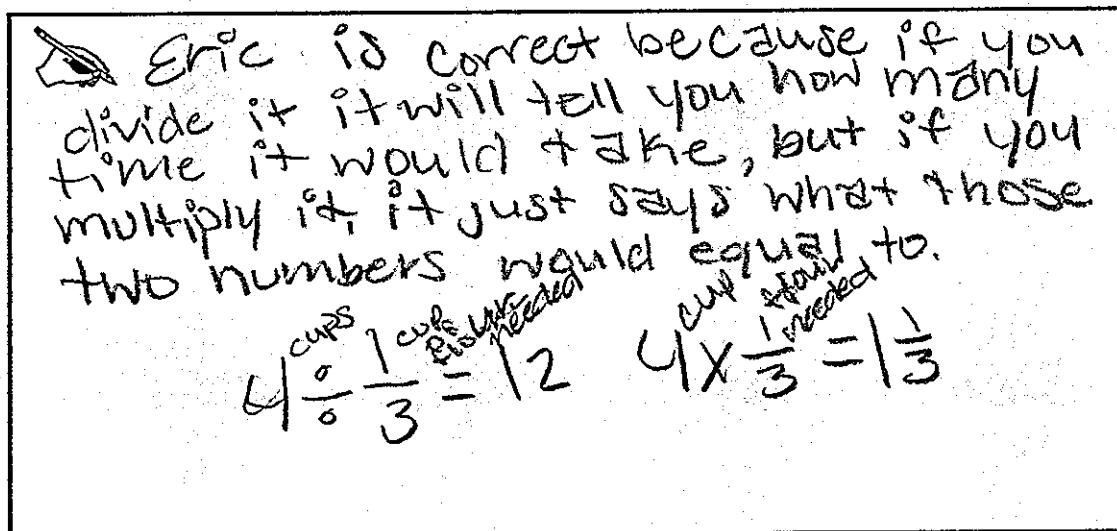 Eric is correct because if you
divide it it will tell you how many
time it would take, but if you
multiply it, it just says what those
two numbers would equal to.
cups cup needed cup flour needed
4 ÷ 1/3 = 12 4 x 1/3 = 1 1/3